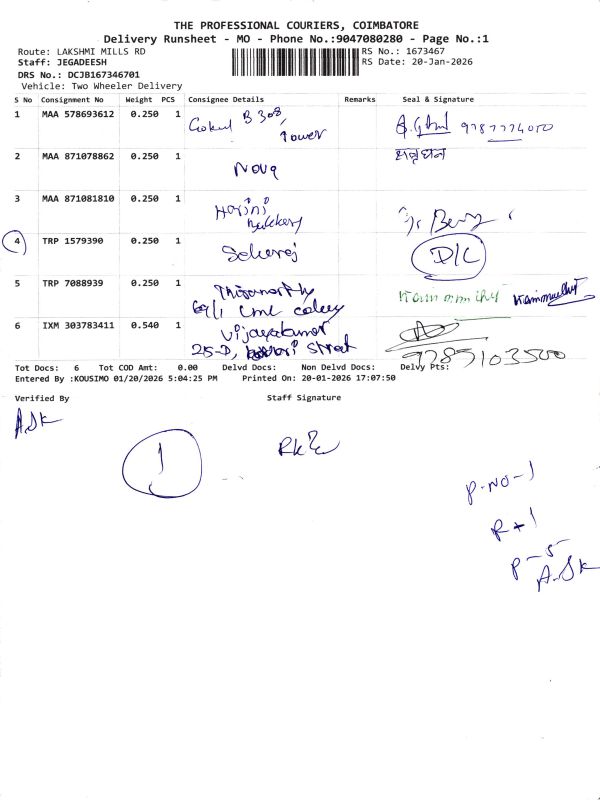 THE PROFESSIONAL COURIERS, COIMBATORE
Delivery Runsheet - MO - Phone No.:9047080280 - Page No.:1
Route: LAKSHMI MILLS RD
RS No.: 1673467
Staff: JEGADEESH
RS Date: 20-Jan-2026
DRS No.: DCJB167346701
Vehicle: Two Wheeler Delivery
S No Consignment No Weight PCS Consignee Details Remarks Seal & Signature
1 MAA 578693612 0.250 1 Gokul B 308, Tower
2 MAA 871078862 0.250 1 Nova
3 MAA 871081810 0.250 1
4 TRP 1579390 0.250 1 D/C
5 TRP 7088939 0.250 1
6 IXM 303783411 0.540 1 Vijayakumar
25-D, Street
Tot Docs: 6 Tot COD Amt: 0.00 Delvd Docs: Non Delvd Docs: Delvy Pts:
Entered By :KOUSIMO 01/20/2026 5:04:25 PM Printed On: 20-01-2026 17:07:50
Verified By Staff Signature
1
P-NO-1
R+1
P-5